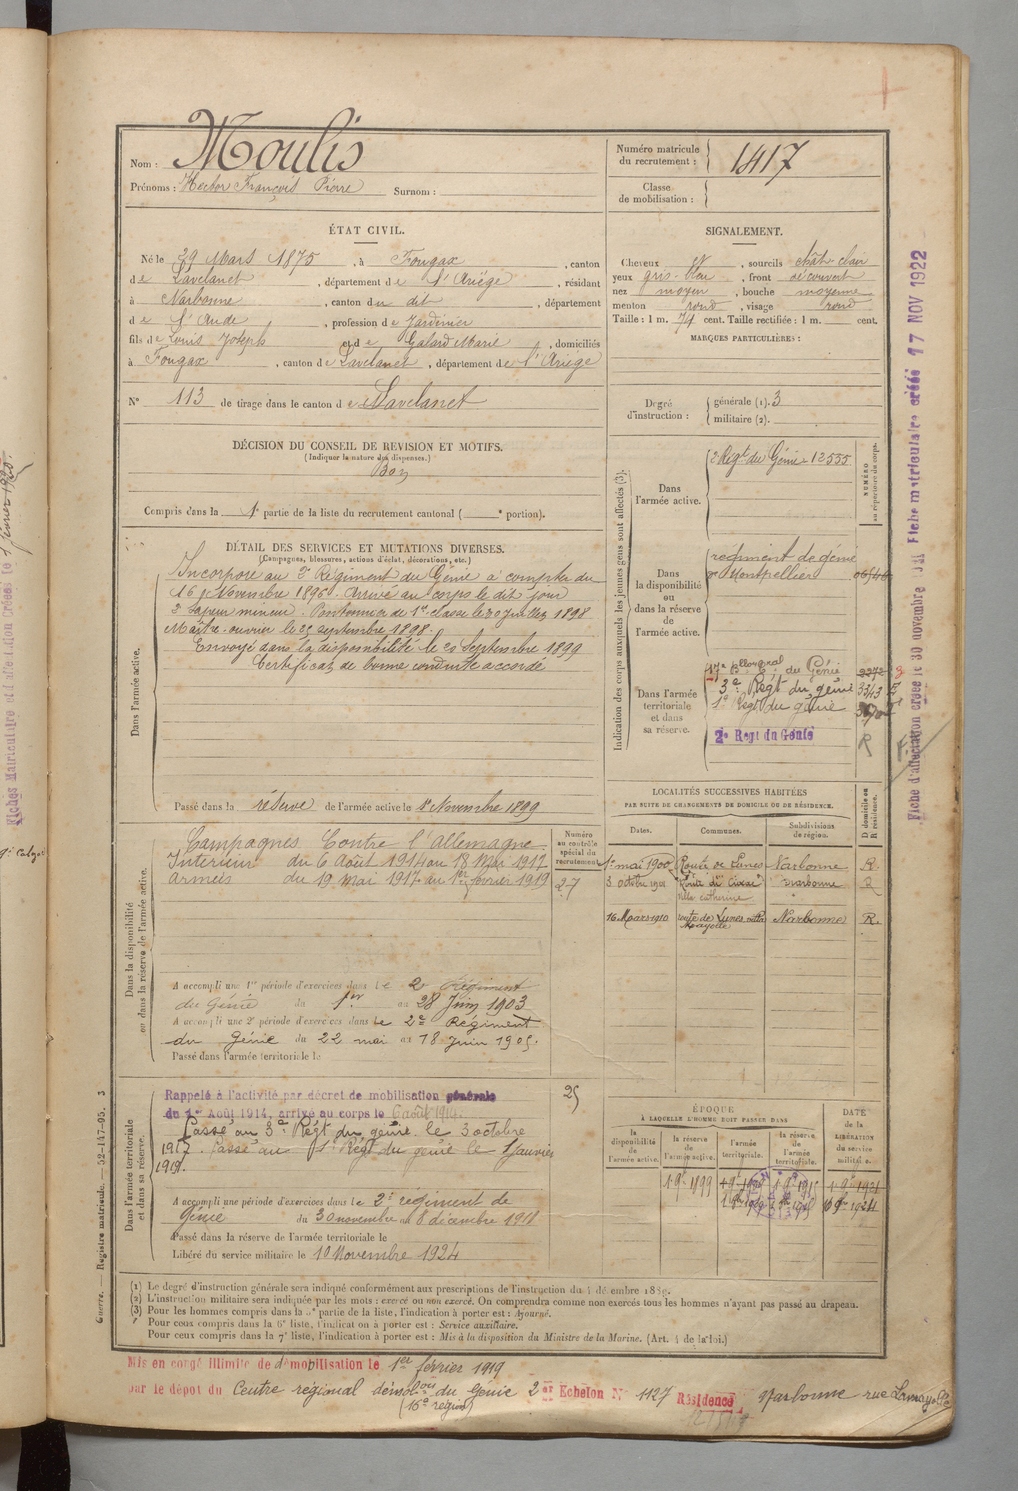 Nom : Moulis
Prénoms : François Pierre Surnom :
Numéro matricule du recrutement : 1417
Classe de mobilisation :
ÉTAT CIVIL.
Né le 29 Mars 1875, à Fougax, canton
de Lavelanet, département de l'Ariège, résidant
à Narbonne, canton du dit, département
de l'Aude, profession de Jardinier
fils de Louis Joseph et de Galard Marie, domiciliés
à Fougax, canton de Lavelanet, département de l'Ariège
N° 113 de tirage dans le canton de Lavelanet
SIGNALEMENT.
Cheveux et, sourcils chât clair
yeux gris-bleu, front découvert
nez moyen, bouche moyenne
menton rond, visage rond
Taille : 1 m. 74 cent. Taille rectifiée : 1 m. cent.
MARQUES PARTICULIÈRES :
Degré d'instruction : générale (1). 3
militaire (2).
DÉCISION DU CONSEIL DE REVISION ET MOTIFS.
(Indiquer la nature des dispenses.)
Bon
Compris dans la 1e partie de la liste du recrutement cantonal ( e portion).
DÉTAIL DES SERVICES ET MUTATIONS DIVERSES.
(Campagnes, blessures, actions d'éclat, décorations, etc.)
Dans l'armée active.
Incorporé au 2e Régiment du Génie à compter du
16 Novembre 1896. Arrivé au corps le dit jour
2e sapeur mineur. Pontonnier de 1re classe le 20 Juillet 1898
Maître ouvrier le 25 septembre 1898.
Envoyé dans la disponibilité le 20 Septembre 1899
Certificat de bonne conduite accordé
Passé dans la réserve de l'armée active le 1er Novembre 1899
Indication des corps auxquels les jeunes gens sont affectés (3).
NUMÉRO au répertoire du corps.
Dans l'armée active.
2e Régt du Génie 12555
Dans la disponibilité ou dans la réserve de l'armée active.
régiment de génie
Montpellier
Dans l'armée territoriale et dans sa réserve.
17e Bon du Génie 2272
3e Régt du génie 3343
1e Régt du génie
2e Regt du Génie
R
Dans la disponibilité ou dans la réserve de l'armée active.
Campagnes Contre l'Allemagne
Intérieur du 6 Août 1914 au 18 Mai 1917
armées du 19 Mai 1917 au 1er février 1919
Numéro au contrôle spécial du recrutement
27
A accompli une 1re période d'exercices dans le 2e Régiment
du Génie du 1er au 28 Juin 1903
A accompli une 2e période d'exercices dans le 2e Régiment
du Génie du 22 mai au 18 Juin 1905.
Passé dans l'armée territoriale le
LOCALITÉS SUCCESSIVES HABITÉES
PAR SUITE DE CHANGEMENTS DE DOMICILE OU DE RÉSIDENCE.
Dates. Communes. Subdivisions de région. D domicile ou R résidence.
1er mai 1900 Route de Lunes Narbonne R.
3 octobre 1901 Narbonne R
villa catherine
16 Mars 1910 route de Lunes, Narbonne R.
Dans l'armée territoriale et dans sa réserve.
Rappelé à l'activité par décret de mobilisation générale
du 1er Août 1914, arrivé au corps le 6 août 1914.
25
Passé au 3e Régt du génie le 3 octobre
1917. Passé au 1e Régt du génie le 1 Janvier
1919.
A accompli une période d'exercices dans le 2e régiment de
Génie du 30 novembre au 8 décembre 1911
Passé dans la réserve de l'armée territoriale le
Libéré du service militaire le 10 Novembre 1924
ÉPOQUE
À LAQUELLE L'HOMME DOIT PASSER DANS
la disponibilité de l'armée active. la réserve de l'armée active. l'armée territoriale. la réserve de l'armée territoriale.
DATE de la LIBÉRATION du service militaire.
1 9bre 1899
(1) Le degré d'instruction générale sera indiqué conformément aux prescriptions de l'instruction du 4 décembre 1889.
(2) L'instruction militaire sera indiquée par les mots : exercé ou non exercé. On comprendra comme non exercés tous les hommes n'ayant pas passé au drapeau.
(3) Pour les hommes compris dans la 5e partie de la liste, l'indication à porter est : Ajourné.
Pour ceux compris dans la 6e liste, l'indication à porter est : Service auxiliaire.
Pour ceux compris dans la 7e liste, l'indication à porter est : Mis à la disposition du Ministre de la Marine. (Art. 4 de la loi.)
Mis en congé illimité de démobilisation le 1er février 1919
par le dépôt du Centre régional démolon du Génie 2er Echelon N° 1127 Résidence Narbonne rue
(16e région)
Guerre. — Registre matricule. — 52-147-95. 3
Fiche d'affectation créée le 30 novembre
Fiche matriculaire créée 17 NOV 1922